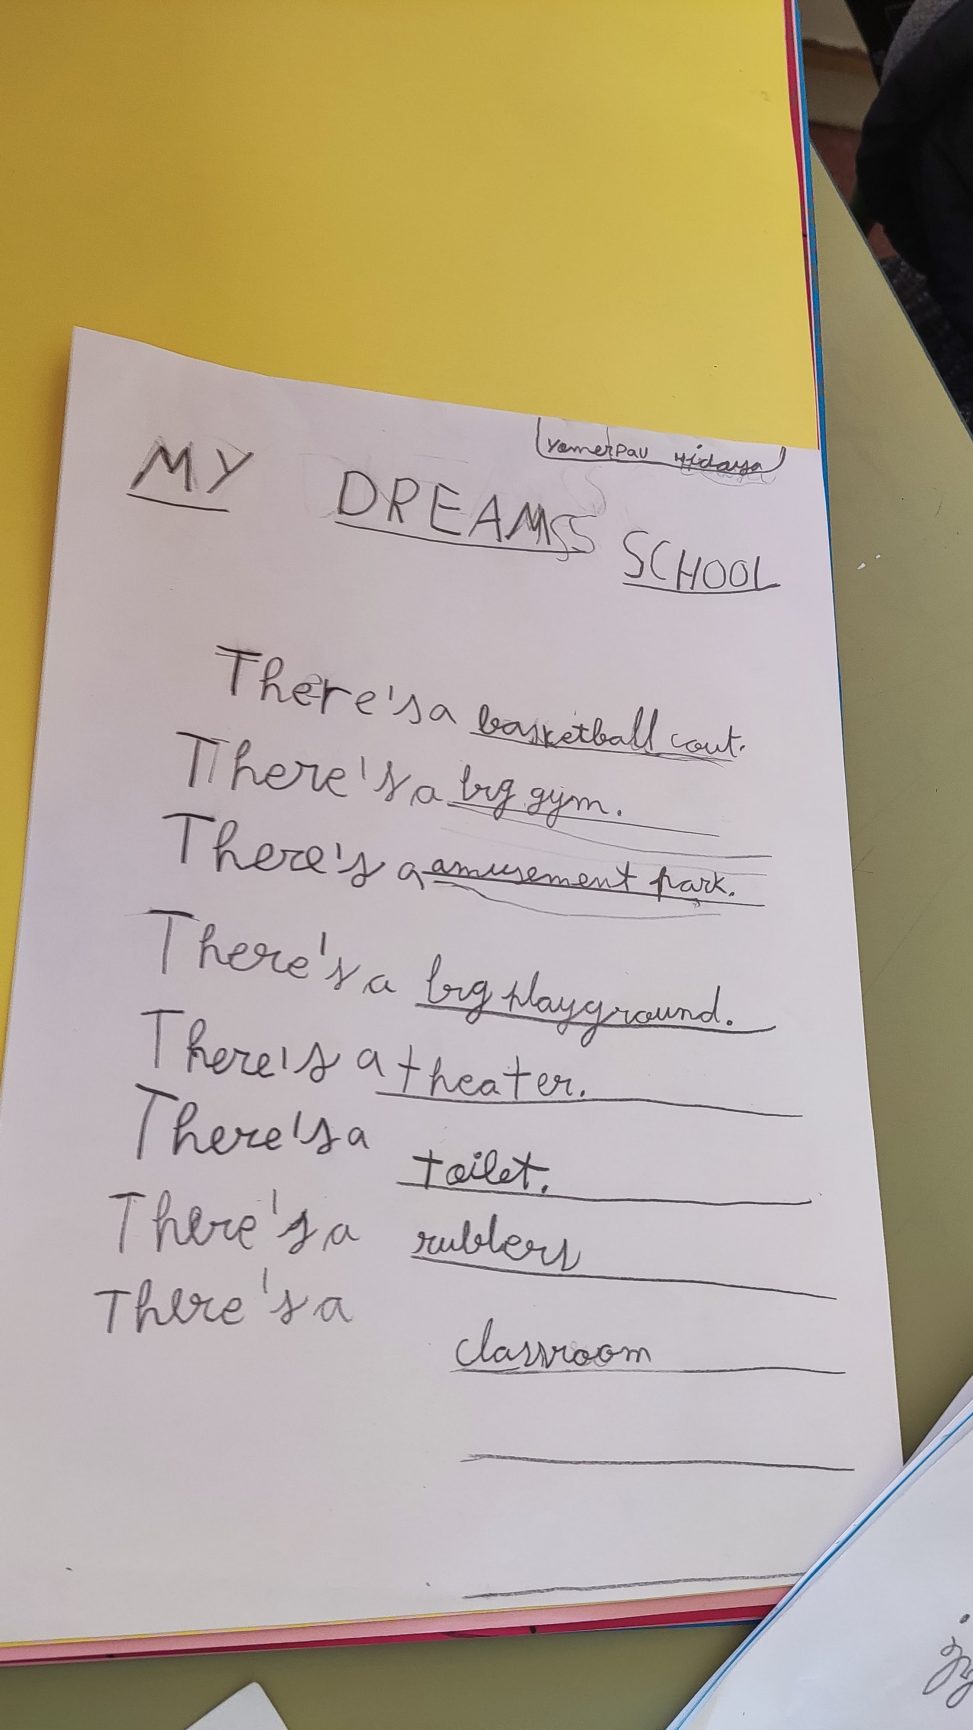 yamerpau Hidaya
MY DREAMS SCHOOL
There's a basketball cout.
There's a big gym.
There's a amusement park.
There's a big playground.
There's a theater.
There's a toilet.
There's a rubbers
There's a classroom